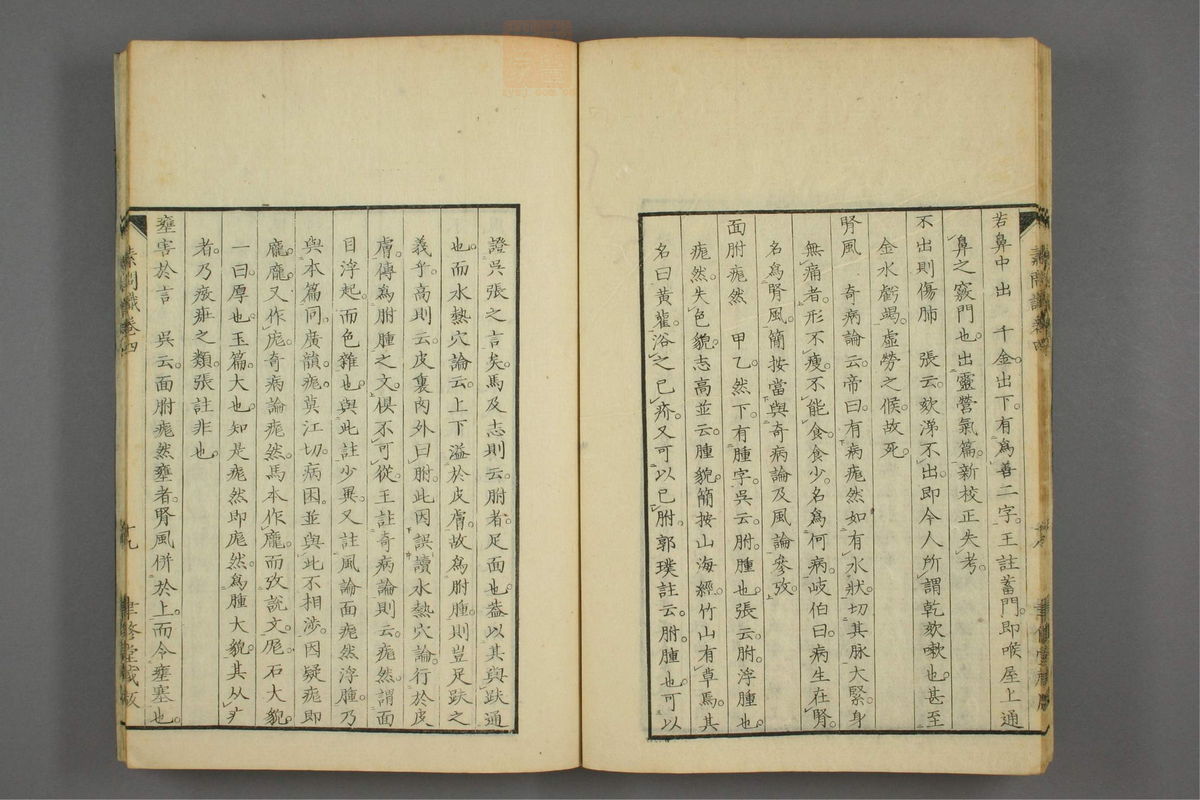 若鼻中出　千金出下。有爲善二字。王註蓄門。即喉屋上通
鼻之竅門也。出靈營氣篇。新校正失考。
不出則傷肺　張云。欬涕不出。即今人所謂乾欬嗽也。甚至
金水虧竭。虛勞之候。故死。
腎風　奇病論云。帝曰。有病痝然如有水狀。切其脉大緊。身
無痛者。形不瘦。不能食。食少。名爲何病。岐伯曰。病生在腎。
名爲腎風。簡按當與奇病論及風論參攷。
面胕痝然　甲乙。然下。有腫字。吳云。胕。腫也。張云。胕。浮腫也。
痝然。失色貌。志高並云。腫貌。簡按山海經。竹山有草焉。其
名曰黃雚。浴之已疥。又可以已胕。郭璞註云。胕。腫也。可以
證吳張之言矣。馬及志則云。胕者。足面也。蓋以其與趺通
也。而水熱穴論云。上下溢於皮膚。故爲胕腫。則豈足趺之
義乎。高則云。皮裏肉外曰胕。此因誤讀水熱穴論。行於皮
膚。傳爲胕腫之文。俱不可從。王註奇病論則云。痝然。謂面
目浮起。而色雜也。與此註少異。又註風論面痝然浮腫。乃
與本篇同。廣韻。痝。莫江切。病困。並與此不相涉。因疑痝即
龐。龐又作庬。奇病論痝然。馬本作龐。而攷說文。厖。石大貌。
一曰厚也。玉篇。大也。知是痝然即庬然。爲腫大貌。其从疒
者。乃痎疟之類。張註非也。
壅害於言　吳云。面胕痝然壅者。腎風併於上。而令壅塞也。
素問識卷四
十九
聿修堂藏板